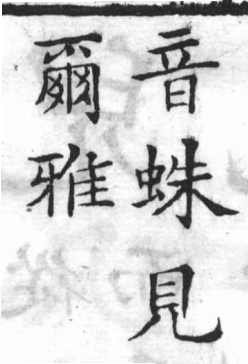 音蛛見
爾雅